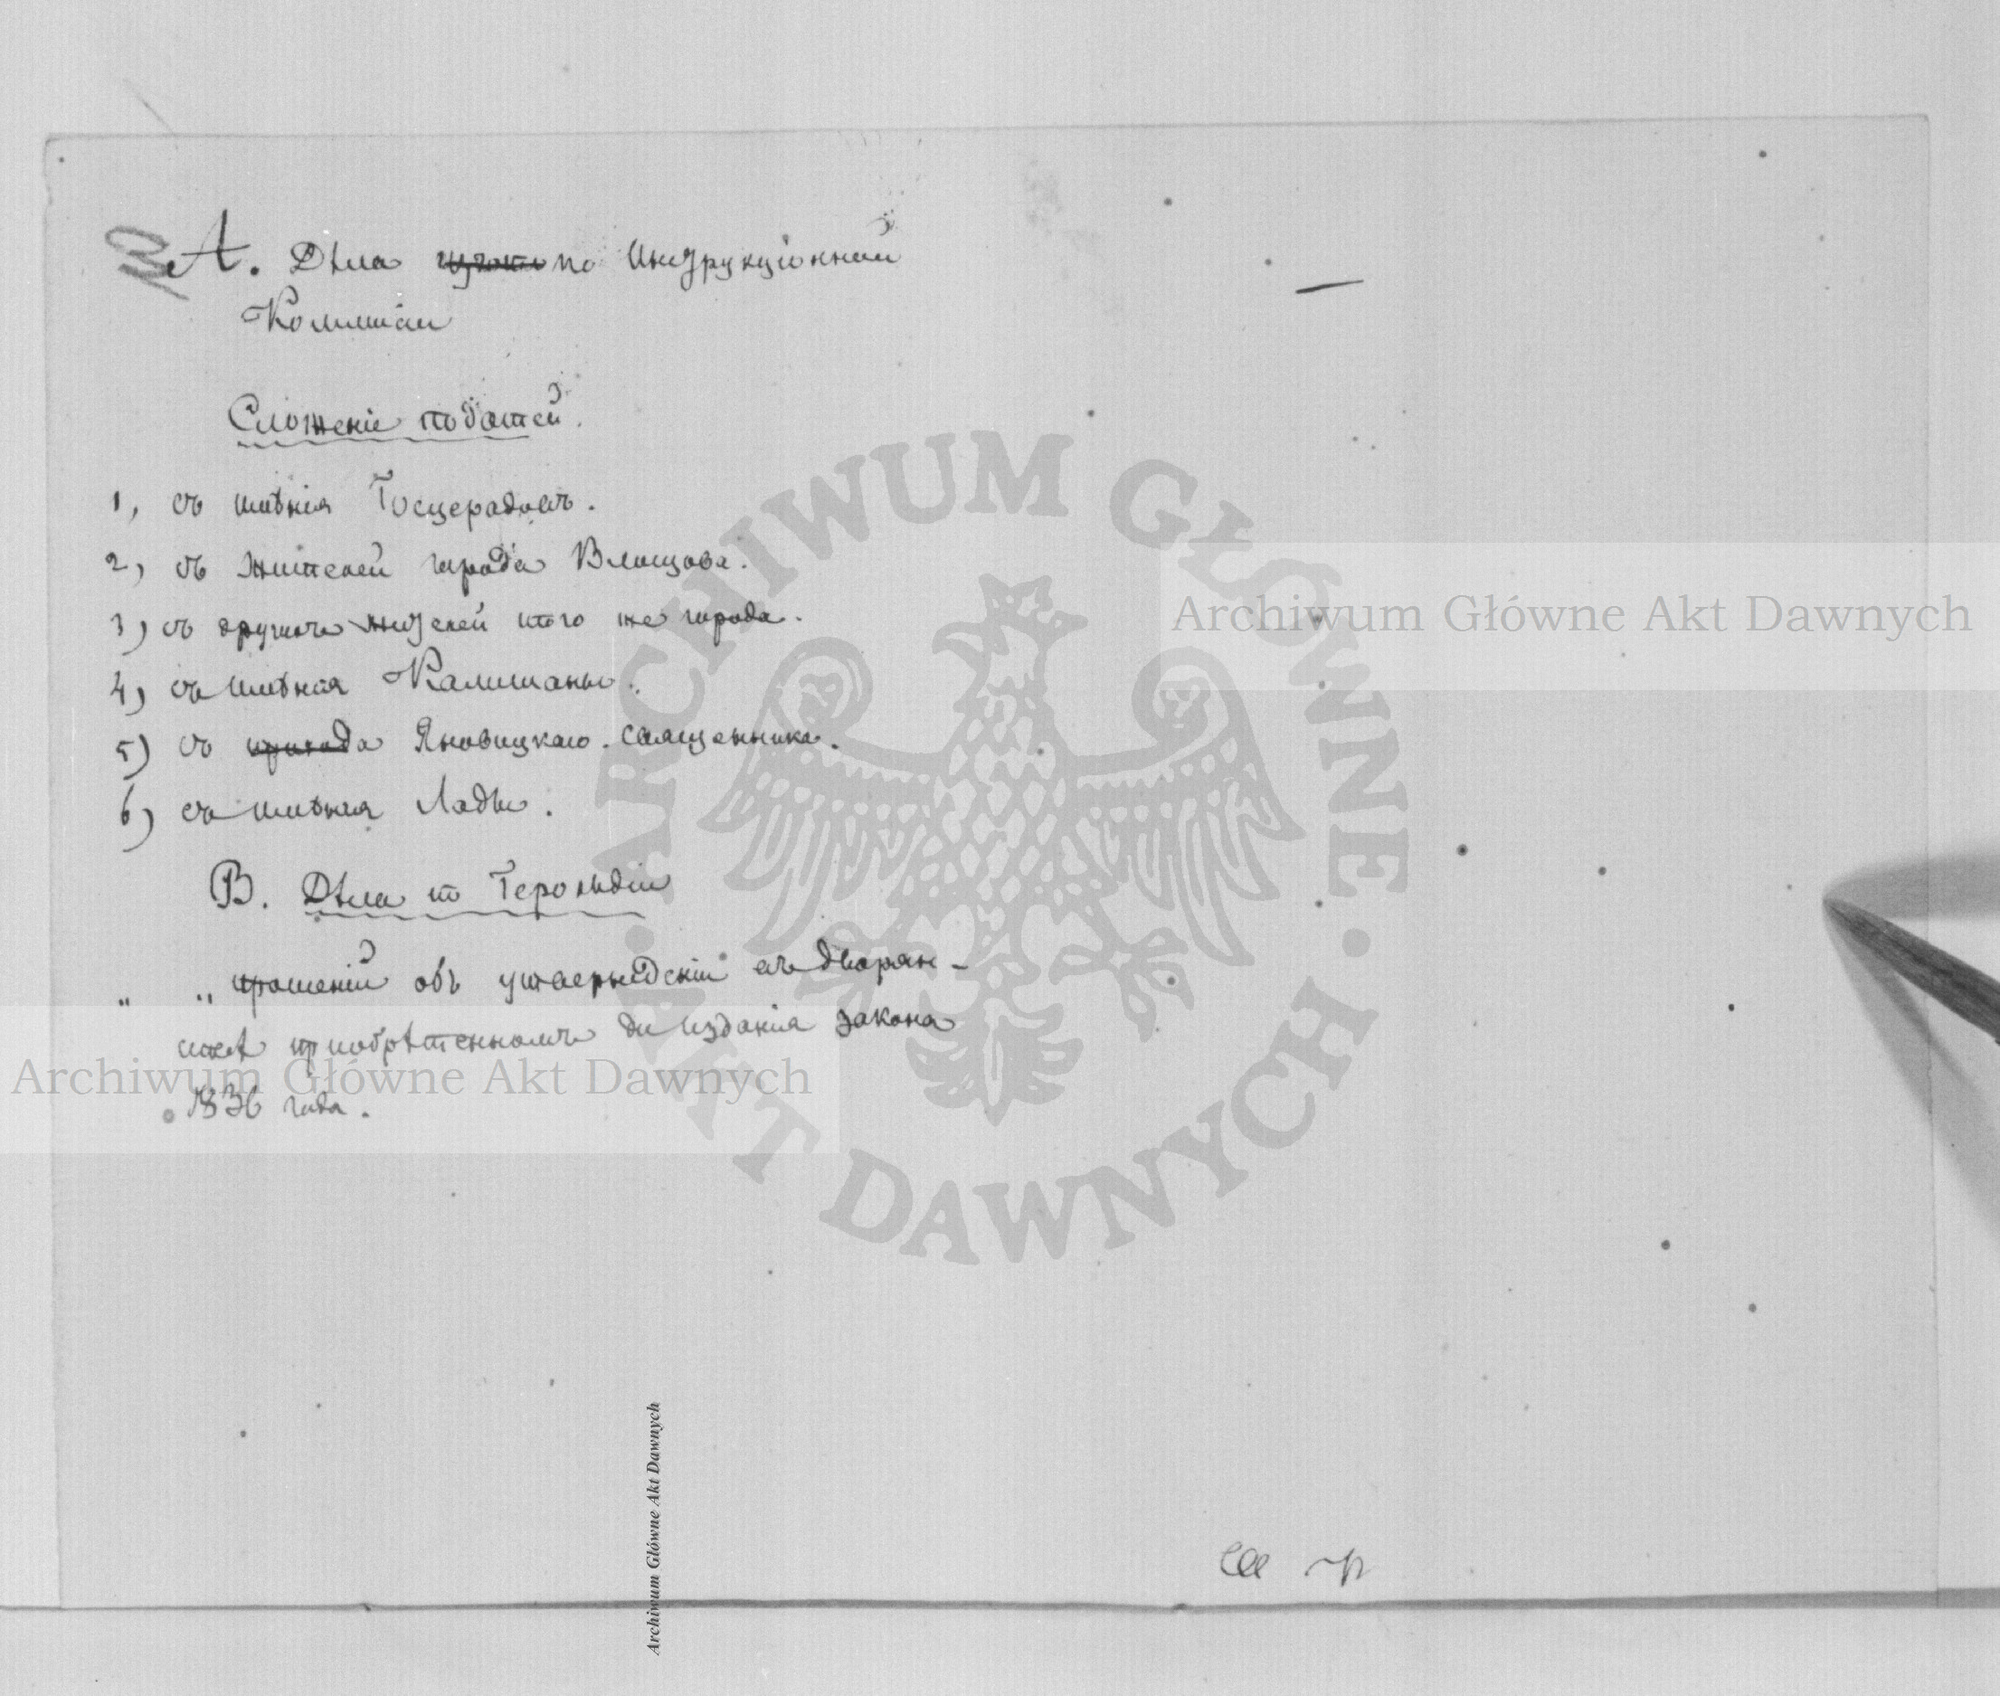 А. Дѣла по Инструкціонной
Коммисіи
Сложеніе податей.
1, съ имѣнія Госцерадовъ.
2) съ жителей города Влощова.
3) съ другихъ жителей того же города.
4) съ имѣнія Калишаны.
5) съ прихода Яновицкаго священника.
6) съ имѣнія Лады.
В. Дѣла по Герольдіи
" " прошеній объ утвержденіи въ дворян-
ствѣ пріобрѣтенномъ до изданія закона
1836 года.
ARCHIWUM GŁÓWNE • AKT DAWNYCH •
Archiwum Główne Akt Dawnych
Archiwum Główne Akt Dawnych
Archiwum Główne Akt Dawnych